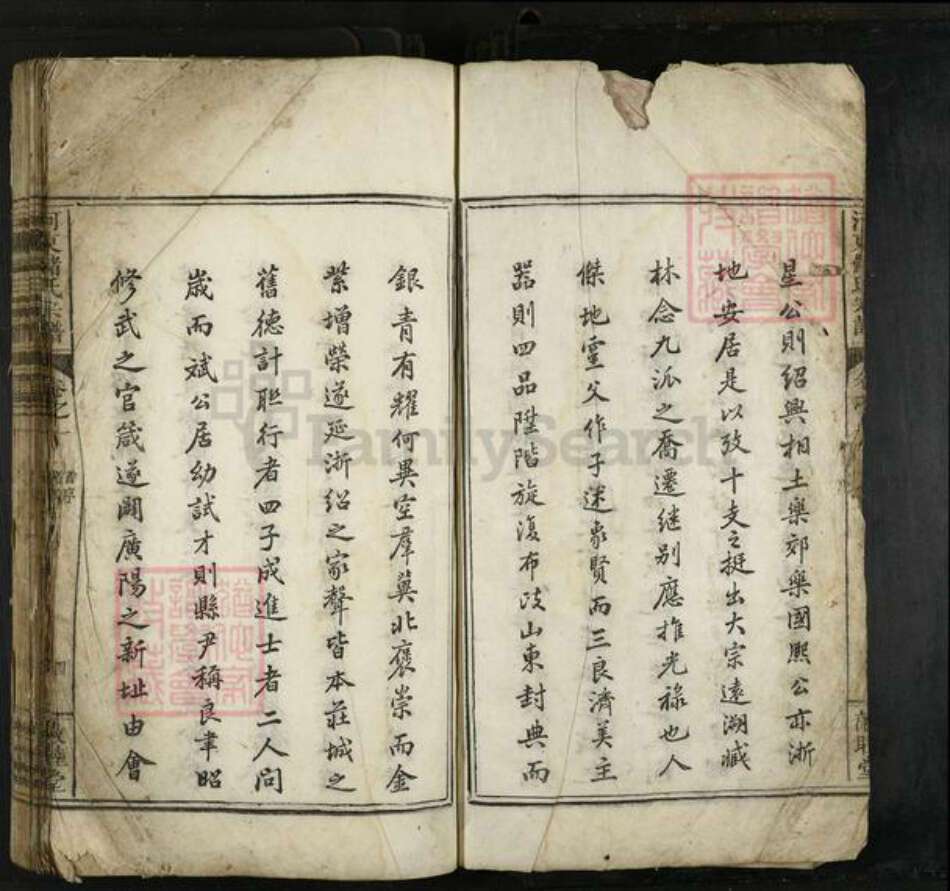 星公則紹興相土樂郊樂國熙公亦浙
地安居是以攷十支之挺出大宗遠溯臧
林念九派之喬遷继别應推光祿也人
傑地靈父作子述象賢而三良濟美主
器則四品陞階旋復布政山東封典而
銀青有耀何異空羣冀北褒崇而金
紫增榮遂延浙绍之家聲皆本莊城之
舊德計聮行者四子成進士者二人问
歲而斌公居幼試才則縣尹稱良聿昭
修武之官箴遂闢廣陽之新址由會
河東 氏宗譜
卷之一
四
睦堂
FamilySearch